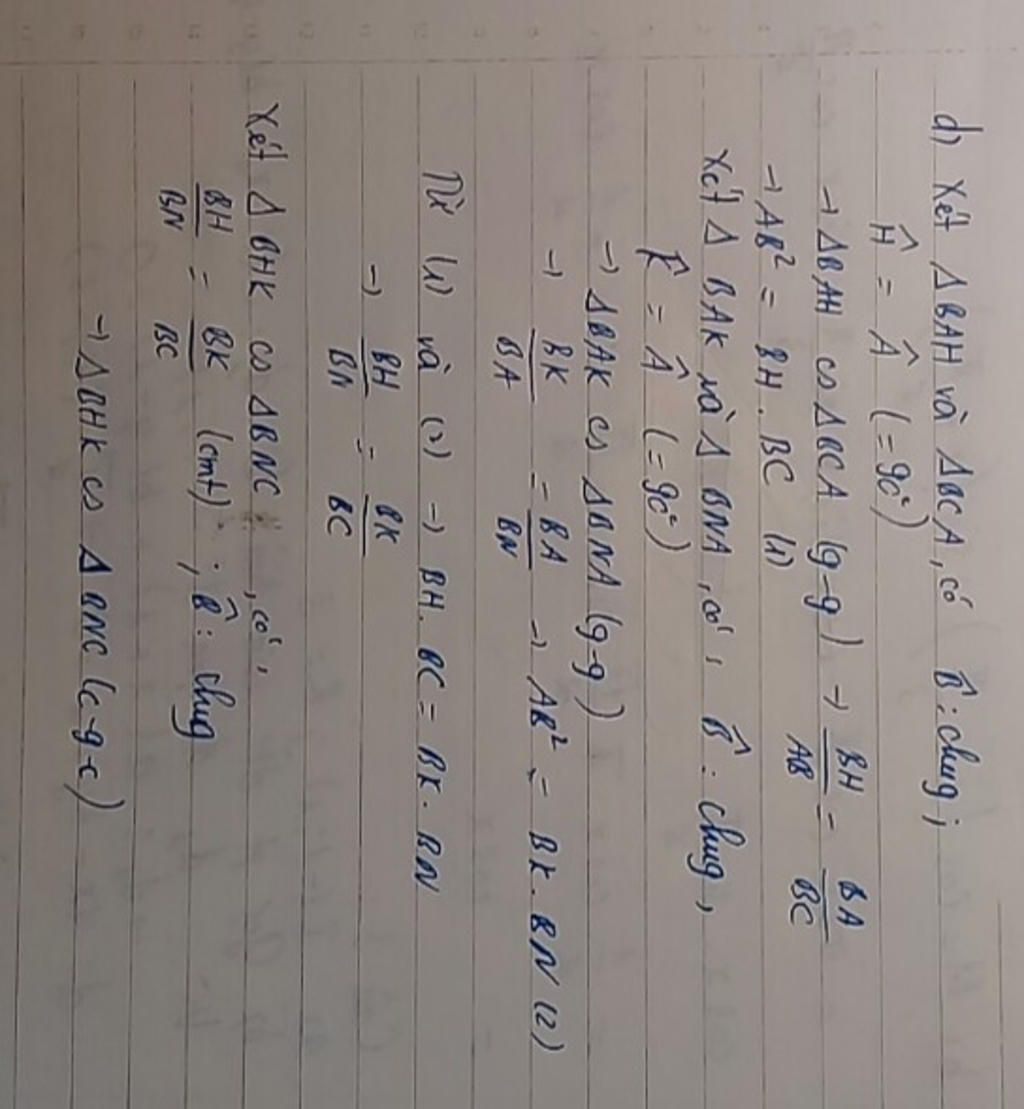 d) Xét ΔBAH và ΔBCA, có B̂: chug;
Ĥ = Â (= 90°)
→ ΔBAH ᔕ ΔBCA (g-g) → BH/AB = BA/BC
→ AB² = BH. BC (1)
Xét Δ BAK và Δ BNA, có: B̂: chug,
K̂ = Â (= 90°)
→ ΔBAK ᔕ ΔBNA (g-g)
→ BK/BA = BA/BN → AB² = BK. BN (2)
Từ (1) và (2) → BH. BC = BK. BN
→ BH/BN = BK/BC
Xét Δ BHK ᔕ ΔBNC, có:
BH/BN = BK/BC (cmt); B̂: chug
→ ΔBHK ᔕ Δ BNC (c-g-c)